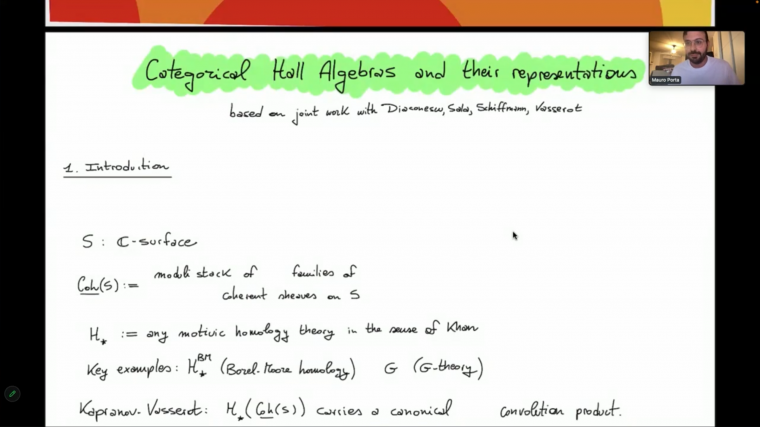 Categorical Hall Algebras and their representations
Mauro Porta
based on joint work with Diaconescu, Sala, Schiffmann, Vasserot
1. Introduction
S : ℂ-surface
Coh(S) := moduli stack of families of
coherent sheaves on S
H⋆ := any motivic homology theory in the sense of Khan
Key examples: H⋆^BM (Borel-Moore homology) G (G-theory)
Kapranov-Vasserot: H⋆(Coh(S)) carries a canonical convolution product.